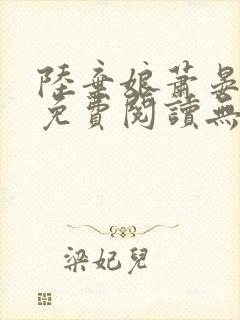 陸棄娘蕭晏
免費閱讀無
梁妃兒